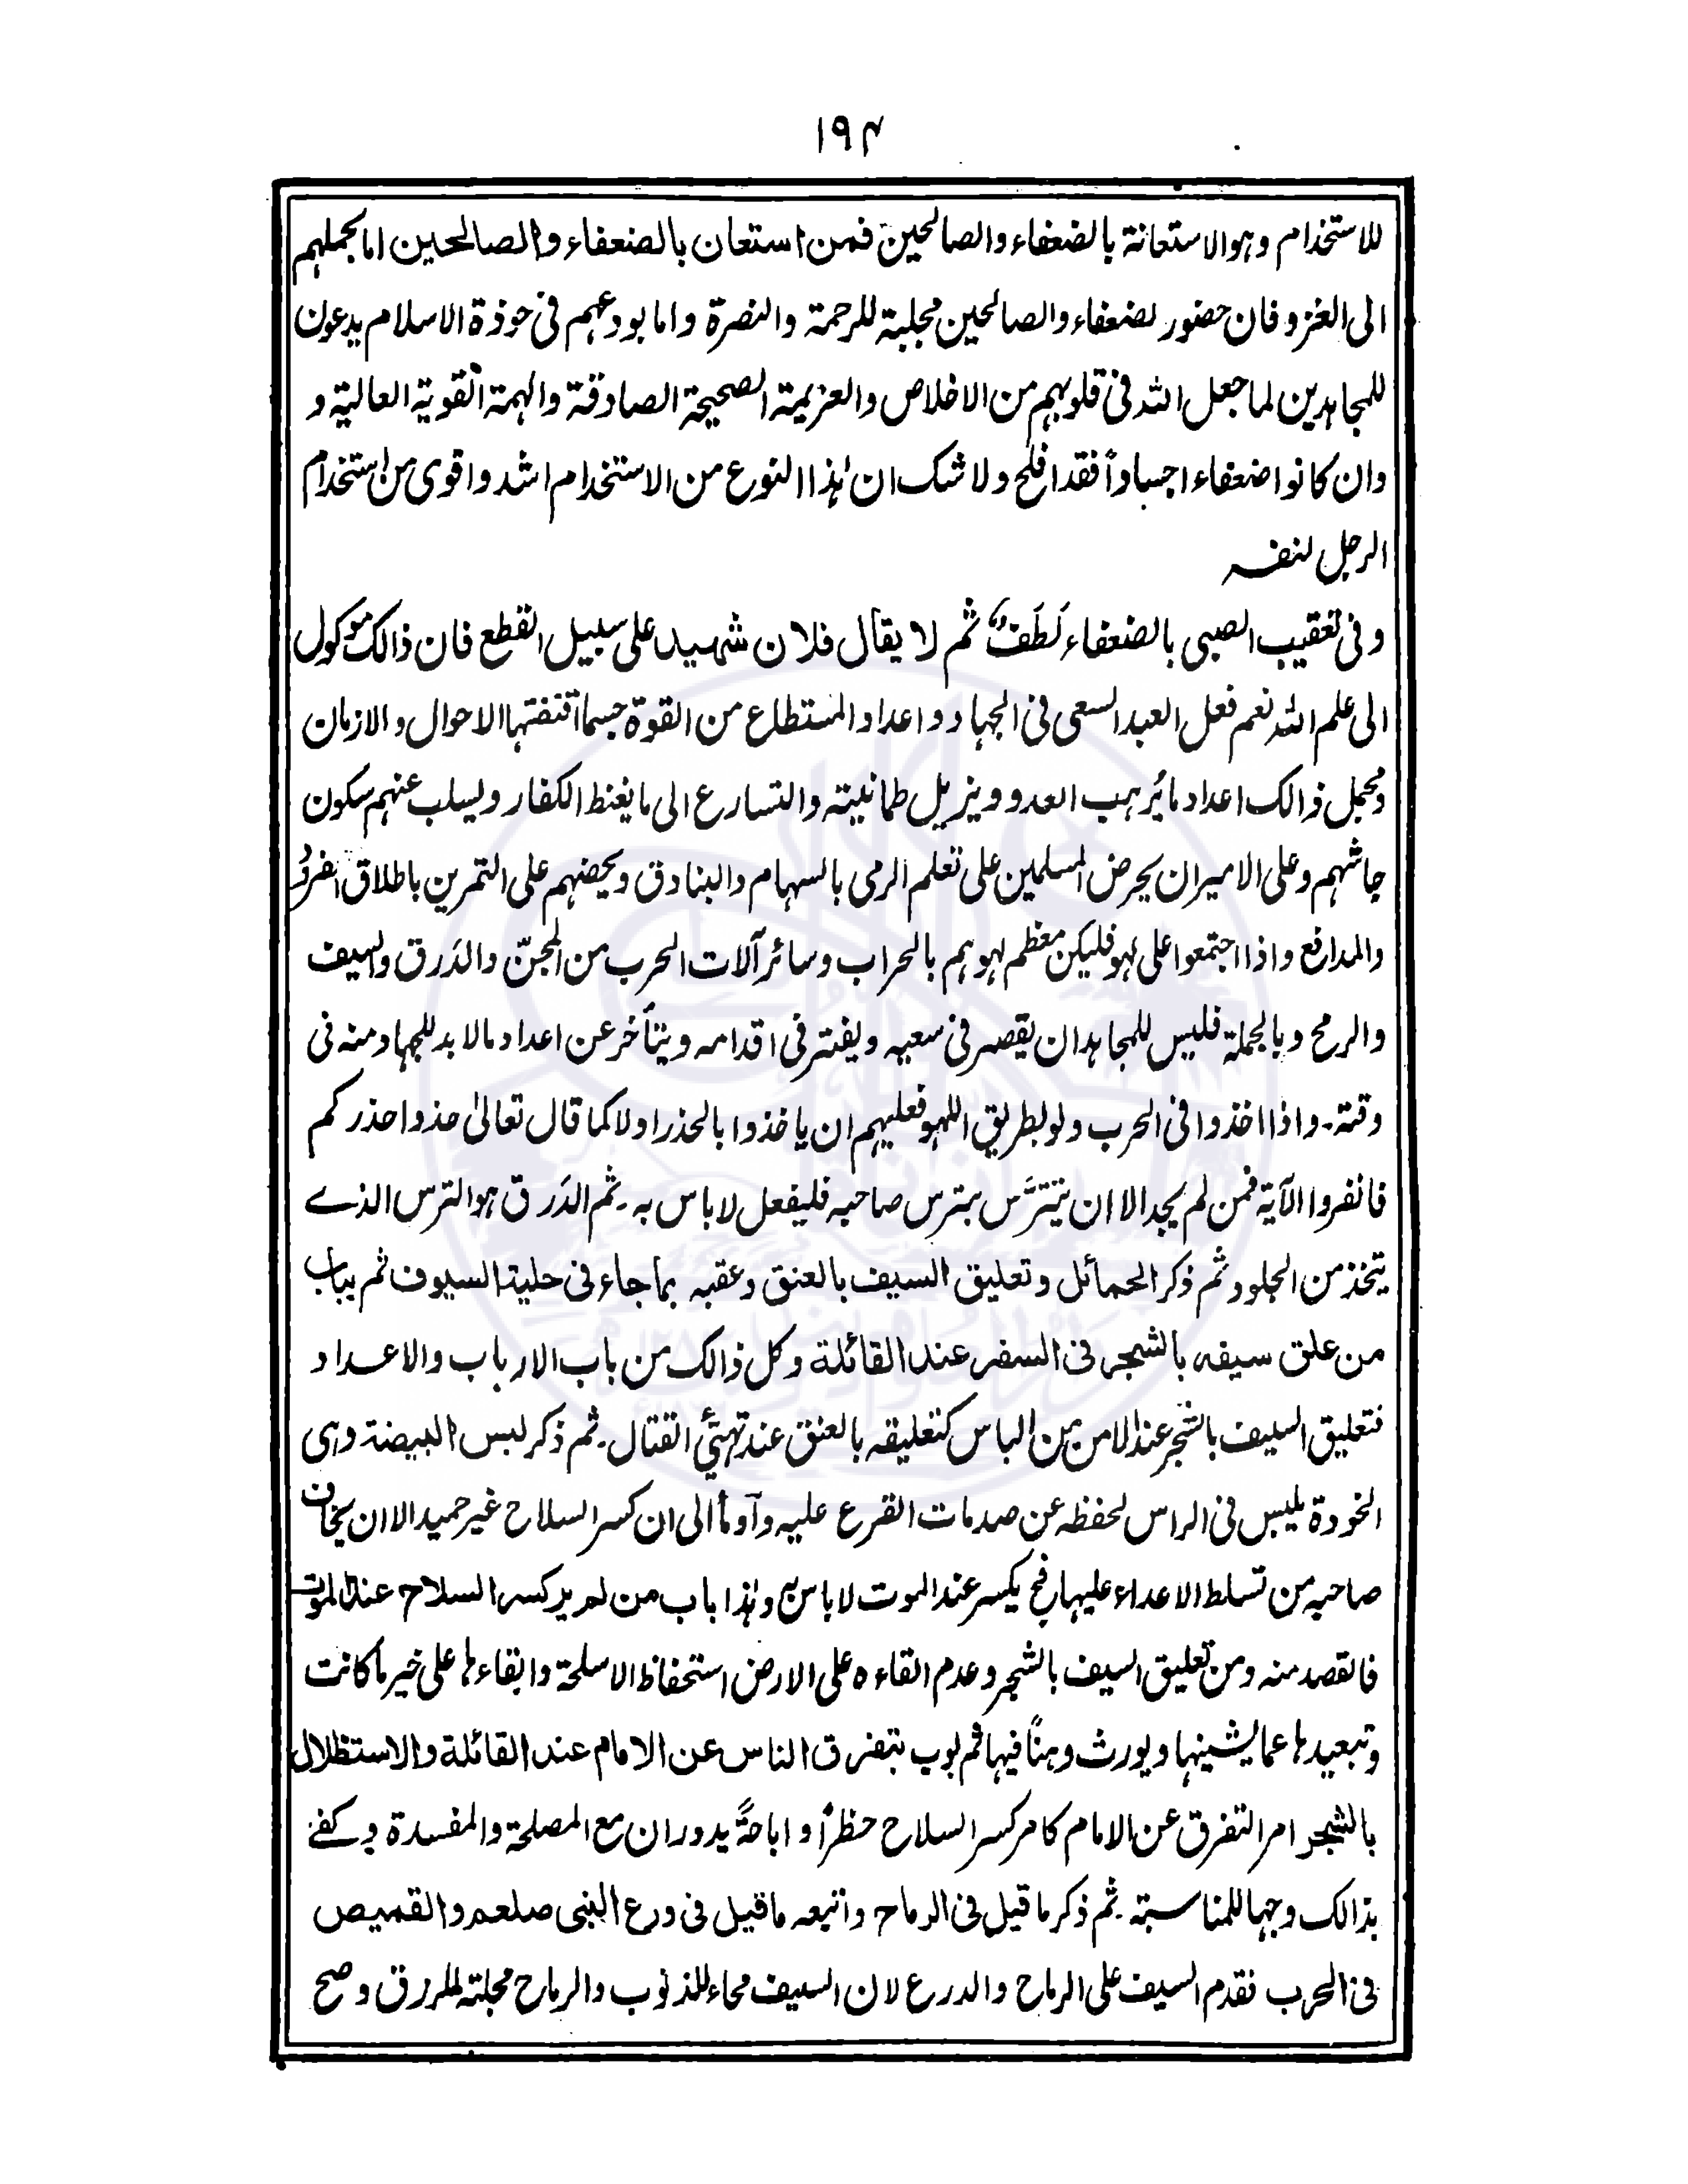 ۱۹۴
للاستخدام وهو الاستعانة بالضعفاء والصالحين فمن استعان بالضعفاء والصالحين اما بحملهم
الى الغزو فان حضور لضعفاء والصالحين مجلبة للرحمة والنصرة واما بودعهم فى حوذة الاسلام يدعون
للمجاهدين لما جعل الله فى قلوبهم من الاخلاص والعزيمة الصحيحة الصادقة والهمة القوية العالية و
وان كانوا ضعفاء اجساداً فقد افلح ولا شك ان هٰذا النوع من الاستخدام اشد واقوى من استخدام
الرجل لنفسه
وفى تعقيب الصبى بالضعفاء لَطَفٌ ثم لا يقال فلان شهيد على سبيل القطع فان ذالك موكول
الى علم الله نعم فعل العبد السعى فى الجهاد و اعداد المستطاع من القوة حسما اقتضتها الاحوال والازمان
ومجمل ذالك اعداد ما يُرهب العدو ويزيل طمانيته والتسارع الى ما يغنط الكفار ويسلب عنهم سكون
جاشهم وعلى الامير ان يحرض المسلمين على تعلم الرمى بالسهام والبنادق ويحضهم على التمرين باطلاق
والمدافع واذا اجتمعوا على لهو فليكن معظم لهوهم بالحراب وسائر آلات الحرب من المجنّ والدَرق والسيف
والرمح وبالجملة فليس للمجاهد ان يقصر فى سعيه ويفتر فى اقدامه ويتأخر عن اعداد مالا بد للجهاد منه فى
وقتة۔ واذا اخذوا فى الحرب ولو بطريق اللهو فعليهم ان ياخذوا بالحذر اولا كما قال تعالىٰ خذوا حذركم
فانفروا الآية فمن لم يجد الا ان يتترَّس بترس صاحبه فليفعل لا باس به۔ ثم الدَرق هو الترس الذے
يتخذ من الجلود ثم ذكر الحمائل وتعليق السيف بالعنق وعقبه بما جاء فى حلية السيوف ثم بباب
من علق سيفه بالشجر فى السفر عند القائلة وكل ذالك من باب الارباب والاعداد
فتعليق السيف بالشجر عند الامن من الباس كتعليقه بالعنق عند تهيّئ القتال۔ ثم ذكر لبس البيضة وهى
الخودة يلبس فى الراس لحفظه عن صدمات القرع عليه وآومأ الى ان كسر السلاح غير حميد الا ان يخاف
صاحبه من تسلط الاعداء عليها فح يكسر عند الموت لا باس به وهٰذا باب من لم ير كسر السلاح عند الموت
فالقصد منه ومن تعليق السيف بالشجر وعدم القاءه على الارض استحفاظ الاسلحة وابقاءها على خير ما كانت
وتبعيدها عما يشينها ويورث وهنًا فيها ثم بوب بتفرق الناس عن الامام عند القائلة والاستظلال
بالشجر امر التفرق عن الامام كامر كسر السلاح حظرًا و اباحةً يدوران مع المصلحة والمفسدة وكفے
بذالك وجها للمناسبة۔ ثم ذكر ما قيل فى الرماح واتبعه ماقيل فى ورع النبى صلعم والقميص
فى الحرب فقدم السيف على الرماح والدرع لان السيف محاء للذنوب والرماح مجلته للرزق وصح